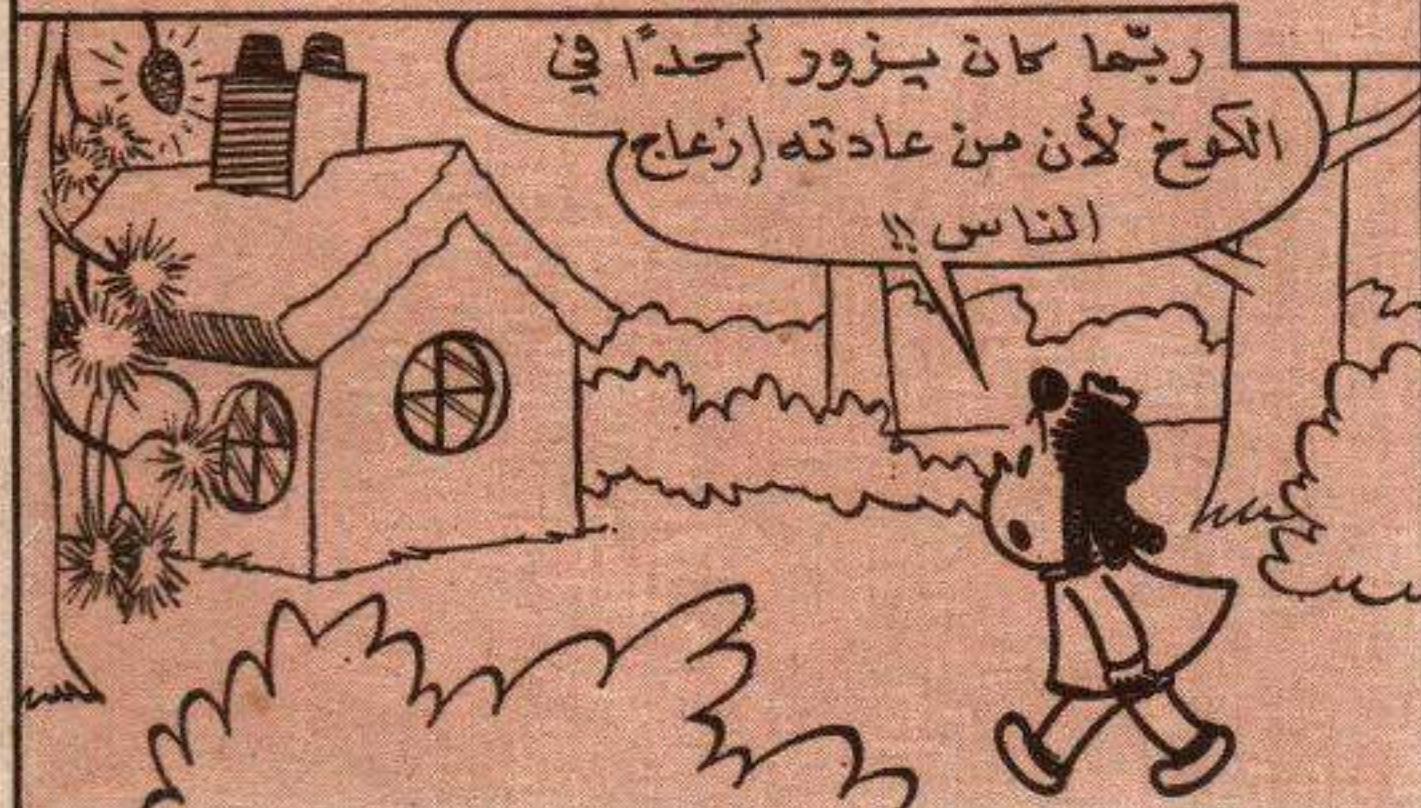 ربّما كان يزور أحدًا في
الكوخ لأن من عادته إزعاج
الناس !!